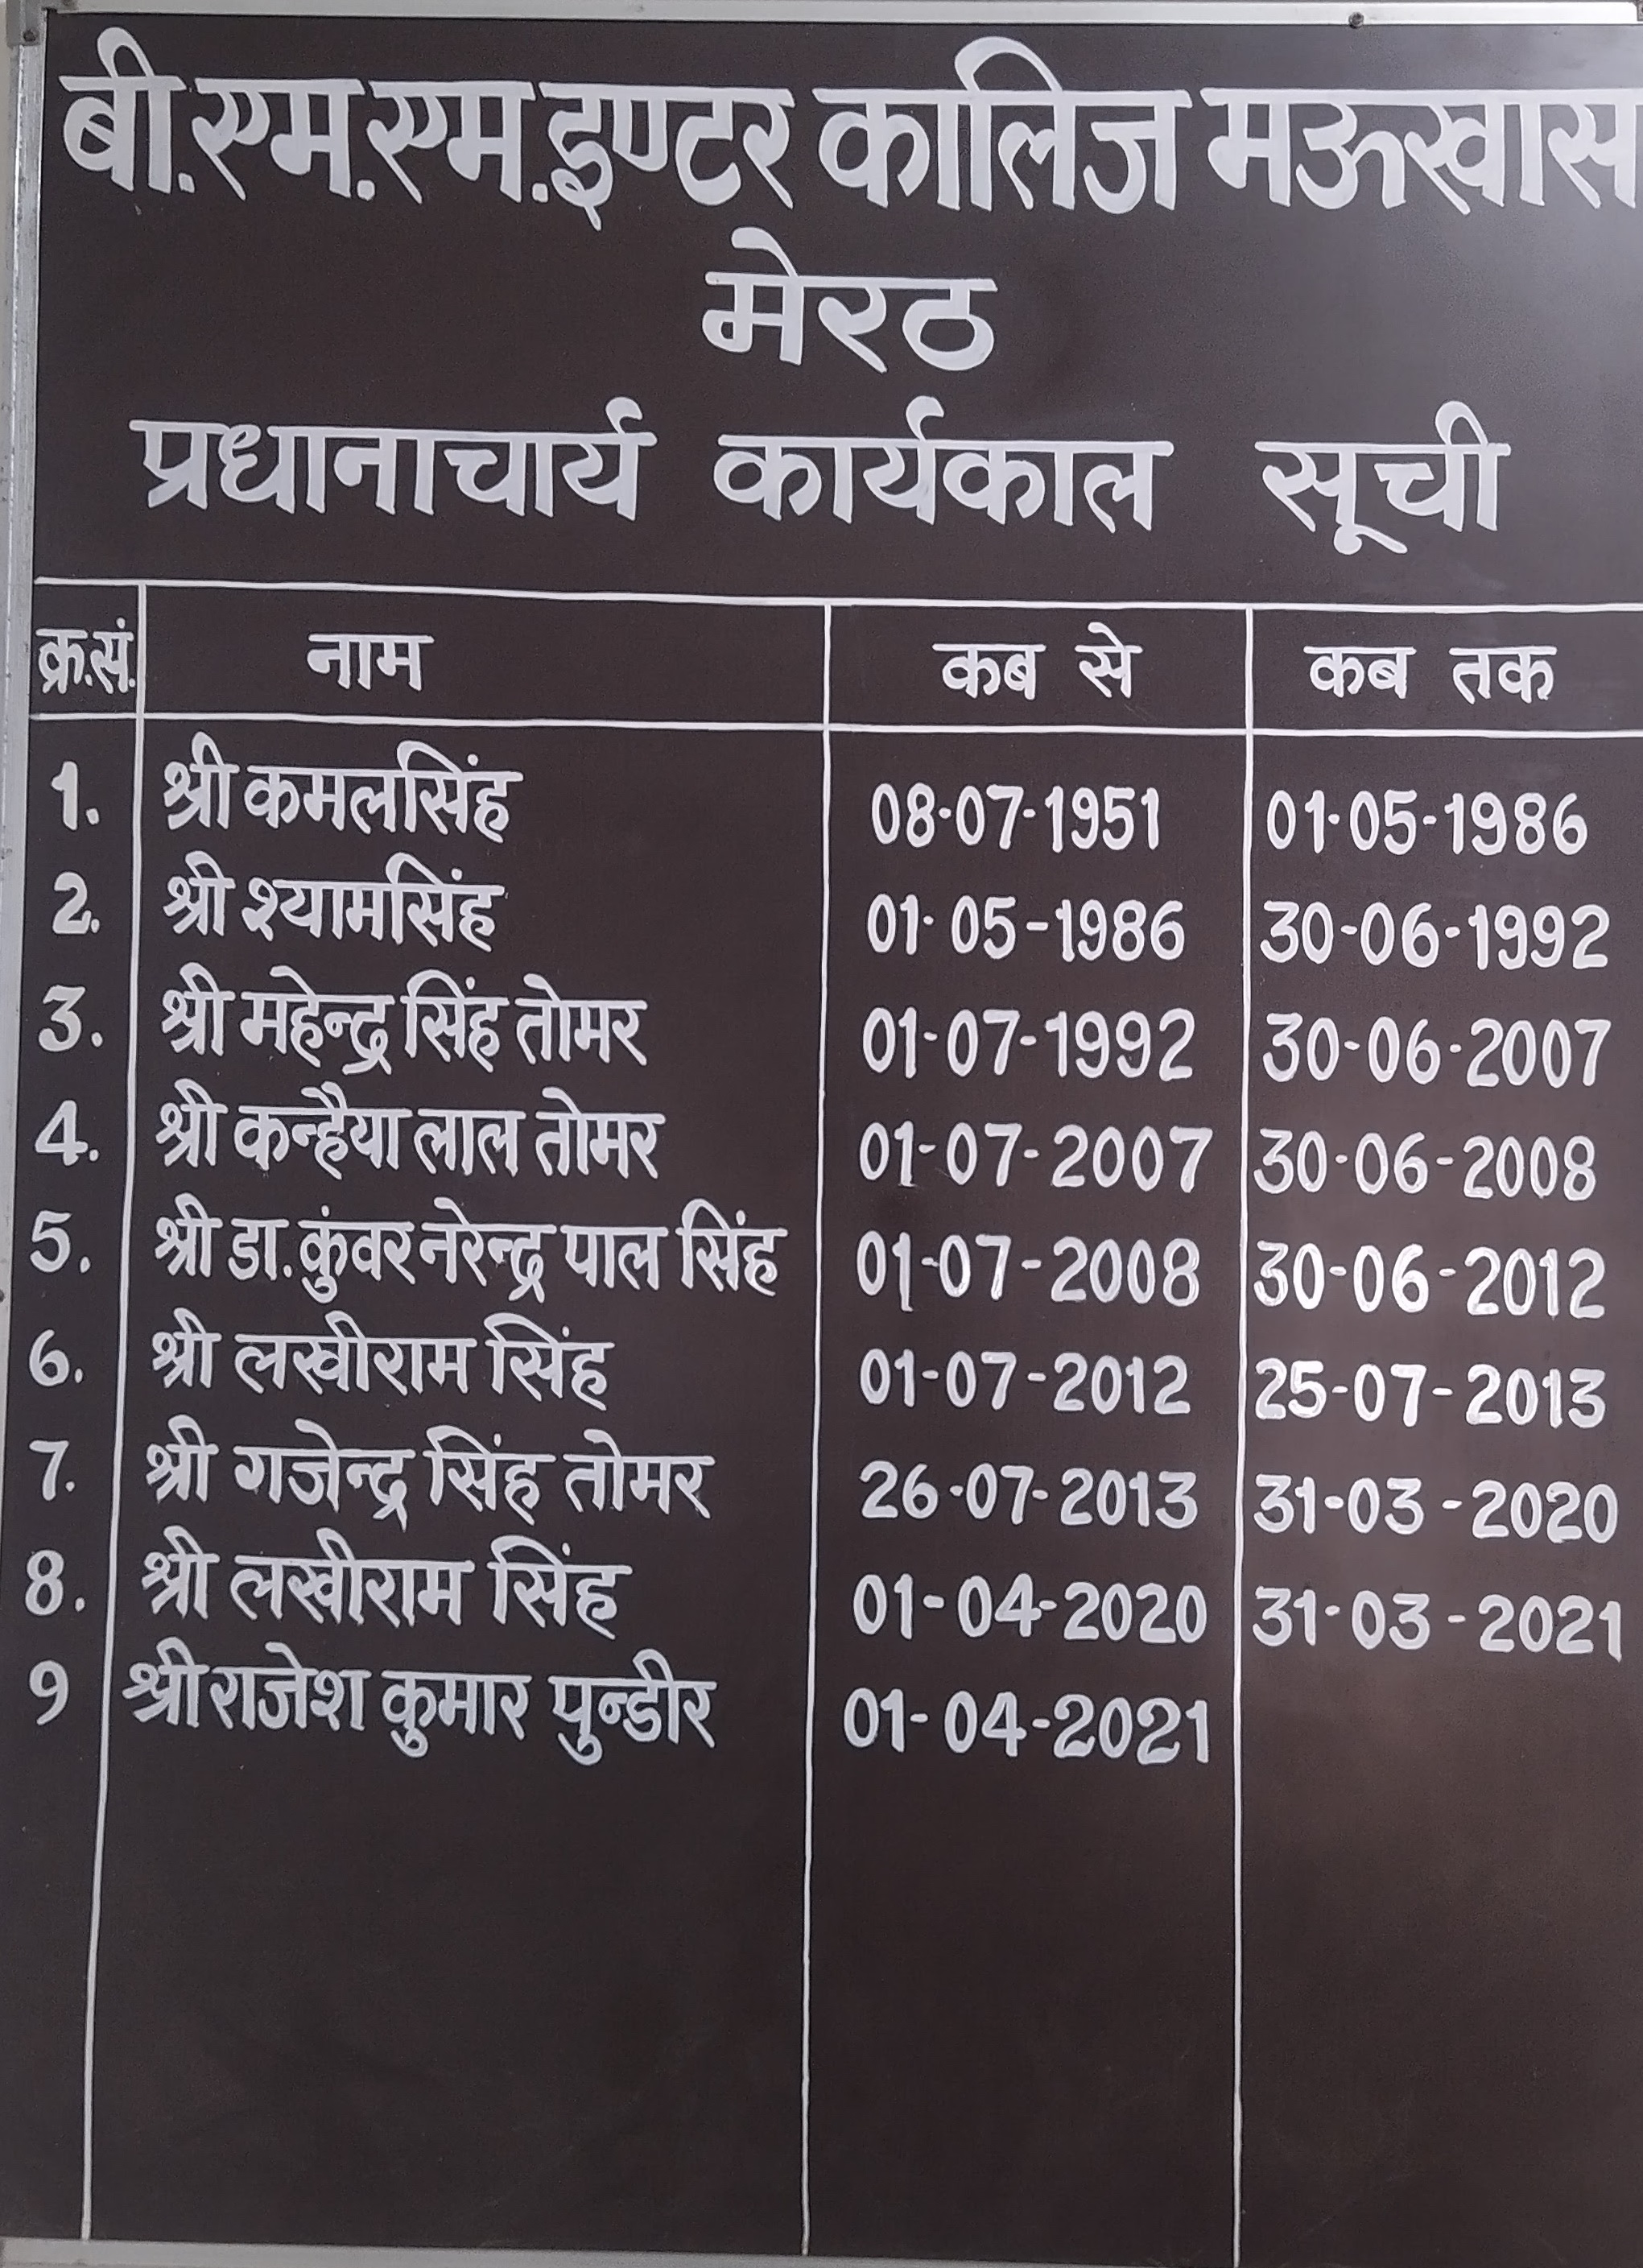 बी.एम.एम.इण्टर कालिज मऊखास
मेरठ
प्रधानाचार्य कार्यकाल सूची
क्र.सं. नाम कब से कब तक
1. श्री कमलसिंह 08-07-1951 01-05-1986
2. श्री श्यामसिंह 01-05-1986 30-06-1992
3. श्री महेन्द्र सिंह तोमर 01-07-1992 30-06-2007
4. श्री कन्हैया लाल तोमर 01-07-2007 30-06-2008
5. श्री डा.कुंवर नरेन्द्र पाल सिंह 01-07-2008 30-06-2012
6. श्री लखीराम सिंह 01-07-2012 25-07-2013
7. श्री गजेन्द्र सिंह तोमर 26-07-2013 31-03-2020
8. श्री लखीराम सिंह 01-04-2020 31-03-2021
9 श्री राजेश कुमार पुन्डीर 01-04-2021